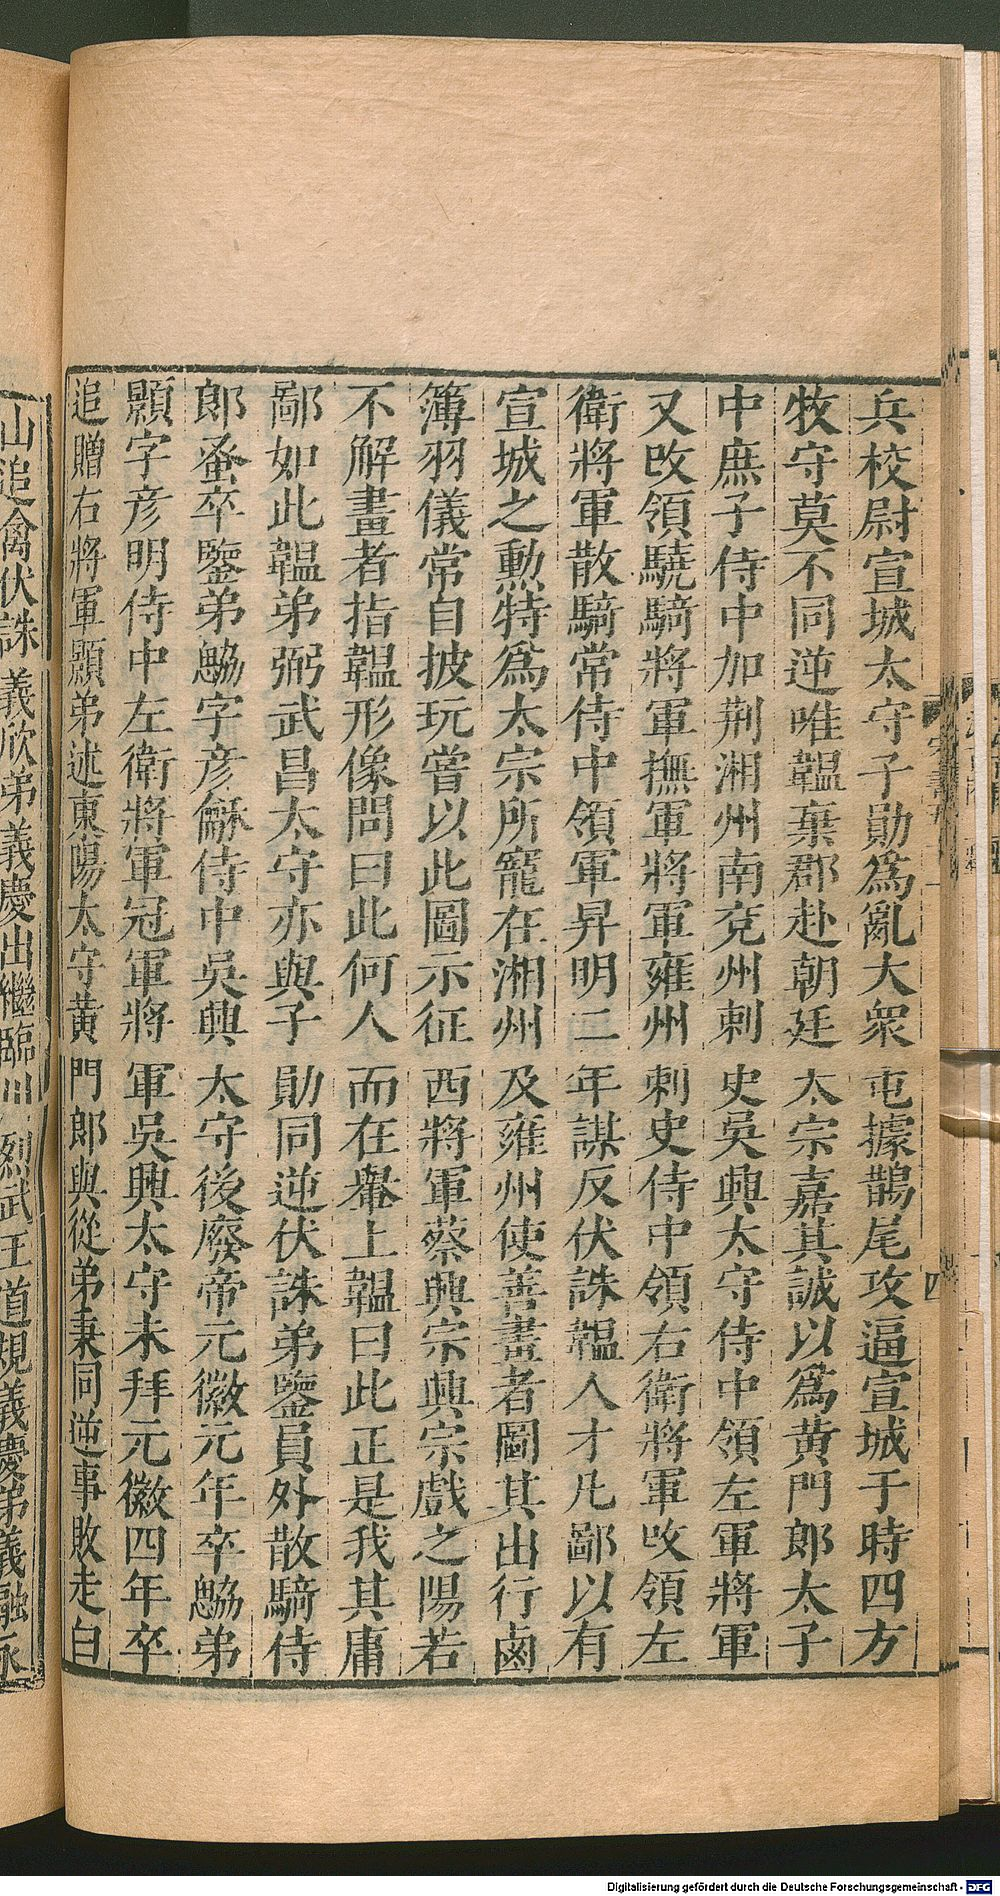 兵校尉宣城太守子勛爲亂大衆屯據鵲尾攻逼宣城于時四方
牧守莫不同逆唯韞棄郡赴朝廷太宗嘉其誠以爲黃門郎太子
中庶子侍中加荆湘州南兗州刺史吳興太守侍中領左軍將軍
又改領驍騎將軍撫軍將軍雍州刺史侍中領右衛將軍改領左
衛將軍散騎常侍中領軍昇明二年謀反伏誅韞人才凡鄙以有
宣城之勲特爲太宗所寵在湘州及雍州使善畫者圖其出行鹵
簿羽儀常自披玩嘗以此圖示征西將軍蔡興宗興宗戲之陽若
不解畫者指韞形像問曰此何人而在轝上韞曰此正是我其庸
鄙如此韞弟弼武昌太守亦與子勛同逆伏誅弟鑒員外散騎侍
郎蚤卒鑒弟勰字彥龢侍中吳興太守後廢帝元徽元年卒勰弟
顥字彥明侍中左衛將軍冠軍將軍吳興太守未拜元徽四年卒
追贈右將軍顥弟述東陽太守黃門郎與從弟秉同逆事敗走白
山追禽伏誅義欣弟義慶出繼臨川烈武王道規義慶弟義融永
四
Digitalisierung gefördert durch die Deutsche Forschungsgemeinschaft - DFG